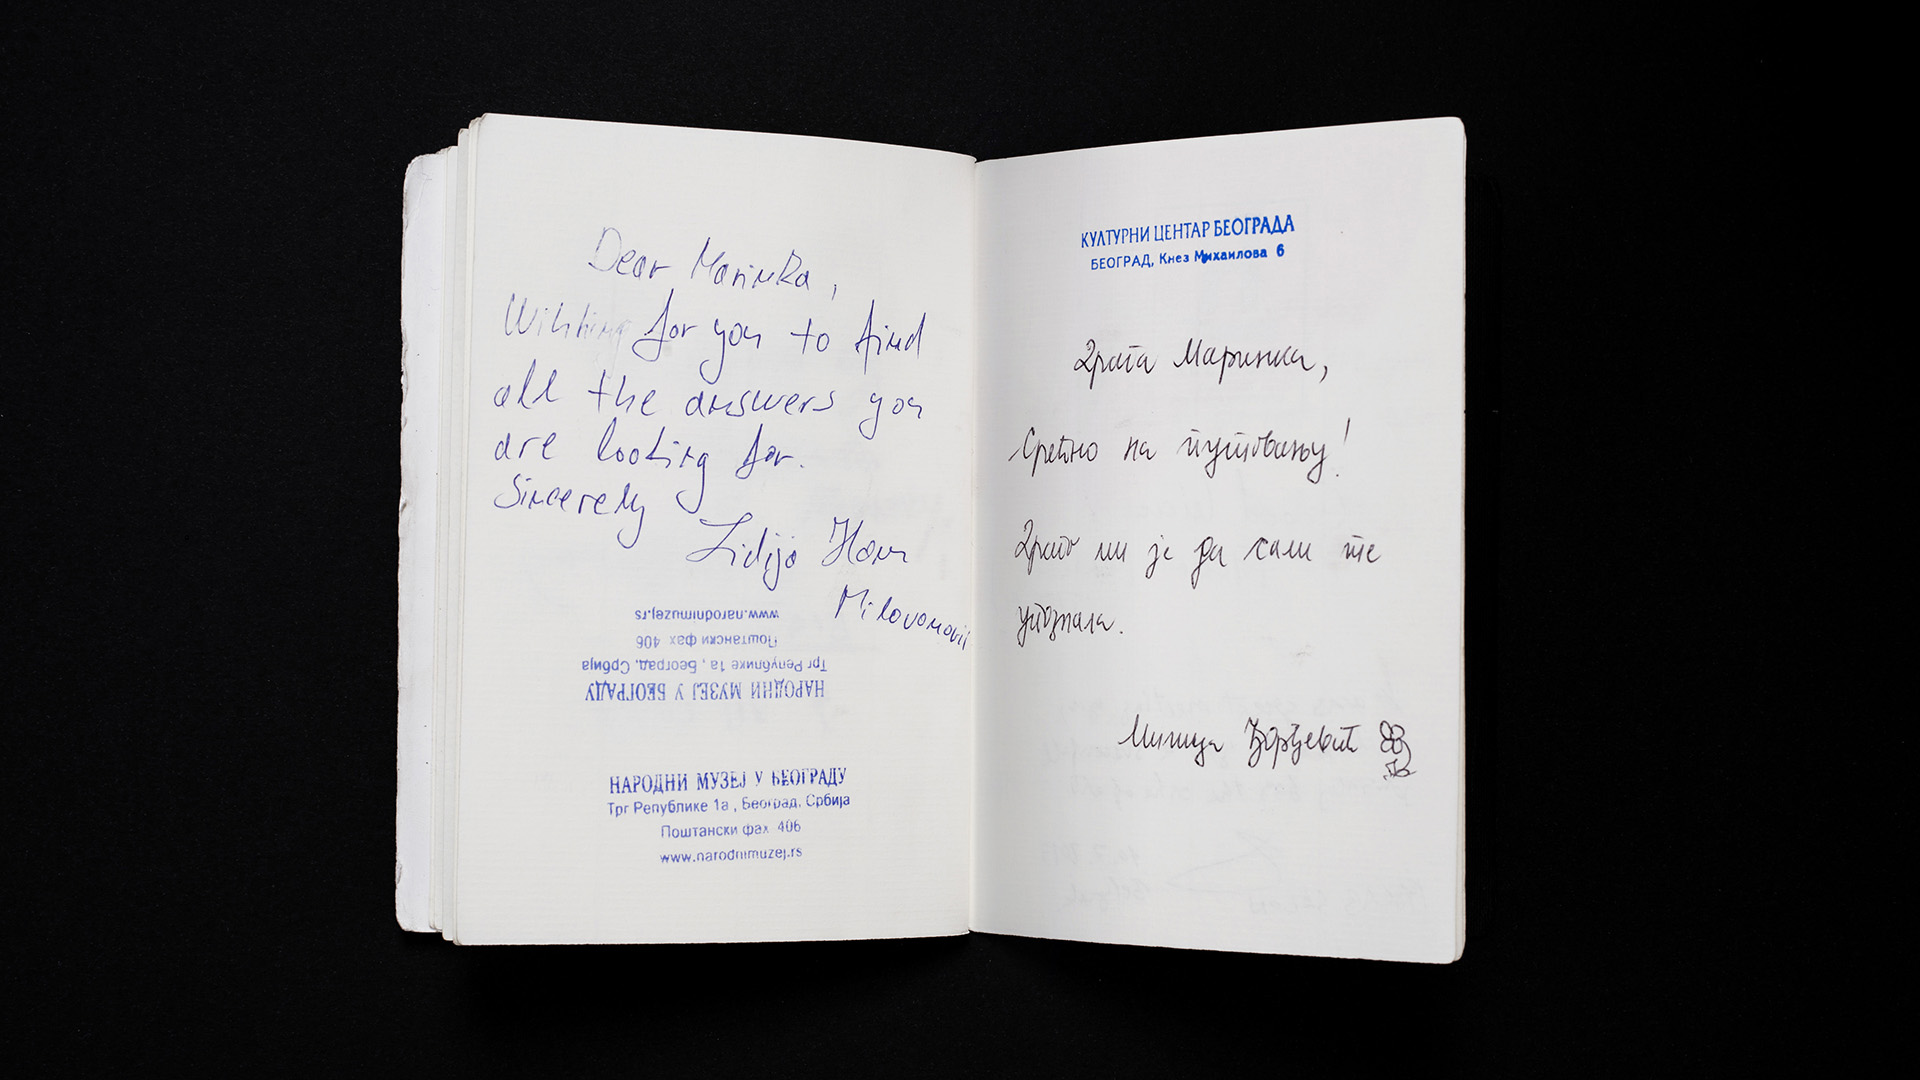 Dear Marinka,
Wishing for you to find
all the answers you
are looking for.
Sincerely
Lidija Ham
Milovanović
www.narodnimuzej.rs
Поштански фах 406
Трг Републике 1а, Београд, Србија
НАРОДНИ МУЗЕЈ У БЕОГРАДУ
НАРОДНИ МУЗЕЈ У БЕОГРАДУ
Трг Републике 1а, Београд, Србија
Поштански фах 406
www.narodnimuzej.rs
КУЛТУРНИ ЦЕНТАР БЕОГРАДА
БЕОГРАД, Кнез Михаилова 6
Драга Маринка,
Срећно на путовању!
Драго ми је да сам те
упознала.
Милица Ђорђевић